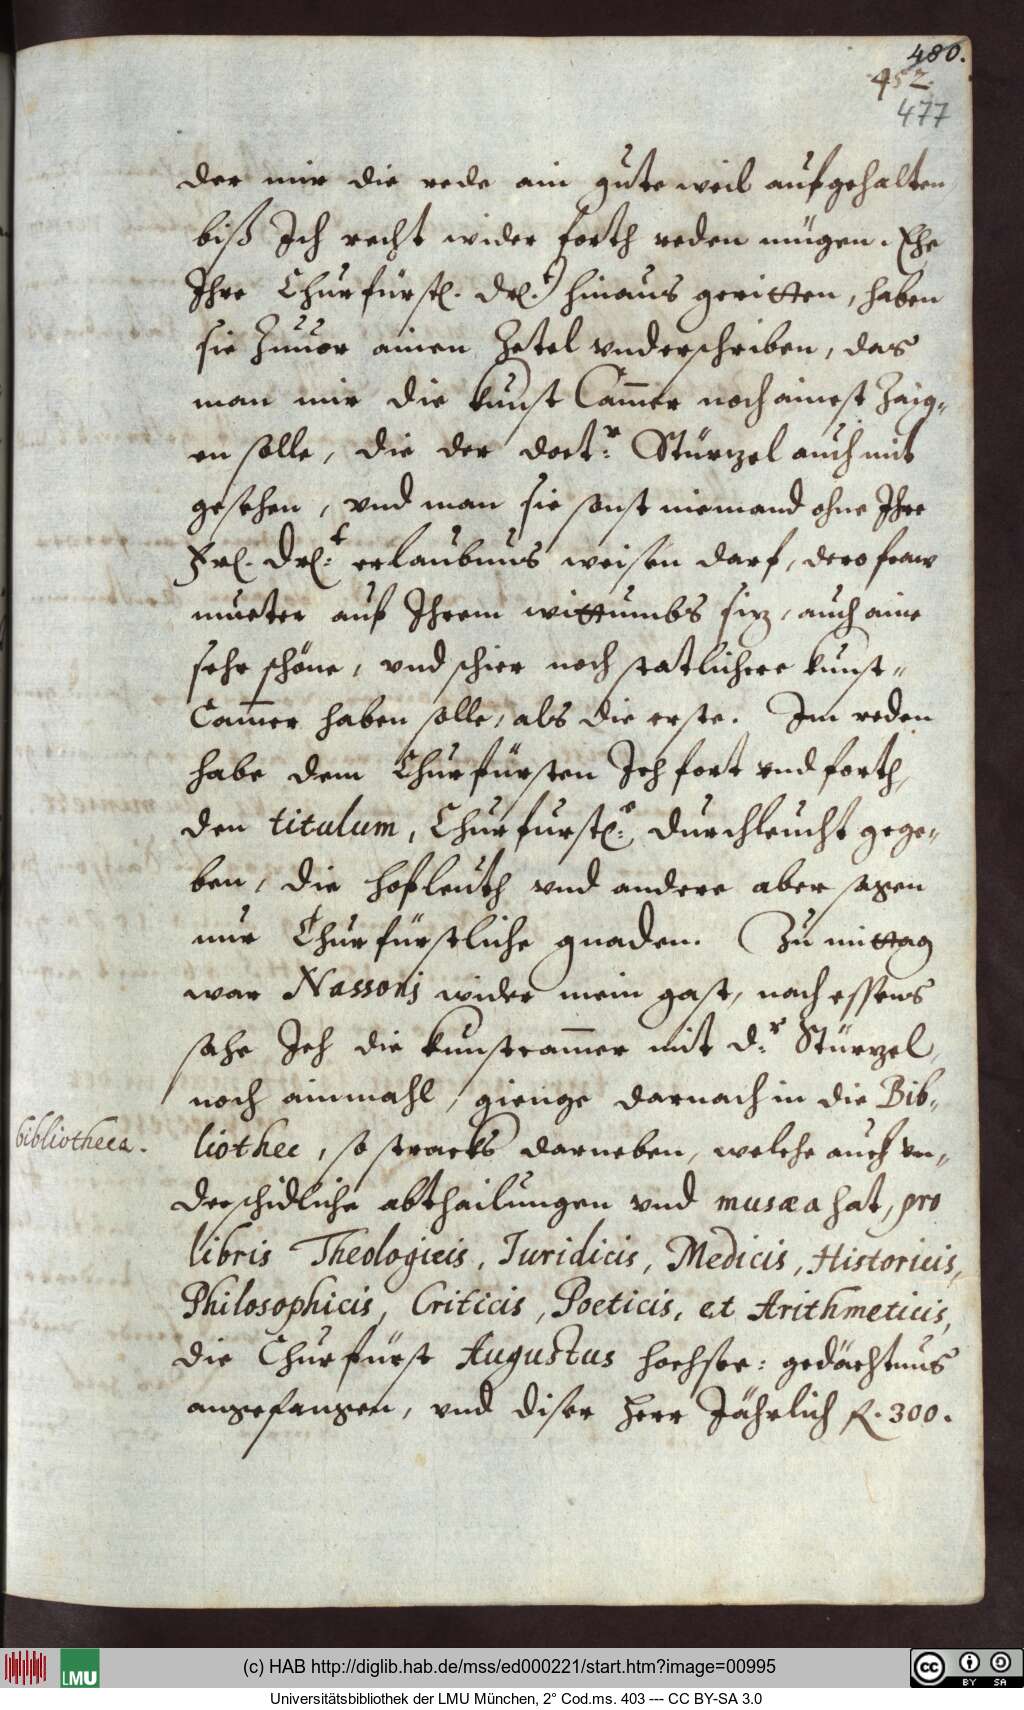 480.
452.
477
der mir die rede ain gute weil aufgehalten
biß Ich recht wider forth reden mügen. Ehe
Ihre Churfürstl. Drl.t hinaus geritten, haben
sie Zuuor ainen Zetel vnderschriben, das
man mir die kunst Cam̄er noch ainest Zaig-
en solle, die der doct:r Stürzel auch mit
gesehen, vnd man sie sonst niemand ohne Ihre
Frl. Drl:t erlaubnus weisen darf, dero fraw
mueter auf Ihrem wittumbs siz, auch aine
sehr schöne, vnd schier noch statlichere kunst-
Cam̄er haben solle, als die erste. Im reden
habe dem Churfürsten Ich fort vnd forth,
den titulum, Churfurstl:e Durchleucht gege-
ben, die hofleuth vnd andere aber sagen
nur Churfürstliche gnaden. Zu mittag
war Nassonj wider mein gast, nach essens
sahe Ich die kunstcam̄er mit D:r Stürzel,
noch ainmahl, gienge darnach in die Bib-
bibliotheca.
liothec, so stracks darneben, welche auch vn-
derschidliche abthailungen vnd musæa hat, pro
libris Theologicis, Iuridicis, Medicis, Historicis,
Philosophicis, Criticis, Poeticis, et Arithmeticis,
die Churfürst Augustus hochsee: gedächtnus
angefangen, vnd diser herr Jährlich fl. 300.
(c) HAB http://diglib.hab.de/mss/ed000221/start.htm?image=00995
LMU
BY SA
Universitätsbibliothek der LMU München, 2° Cod.ms. 403 --- CC BY-SA 3.0